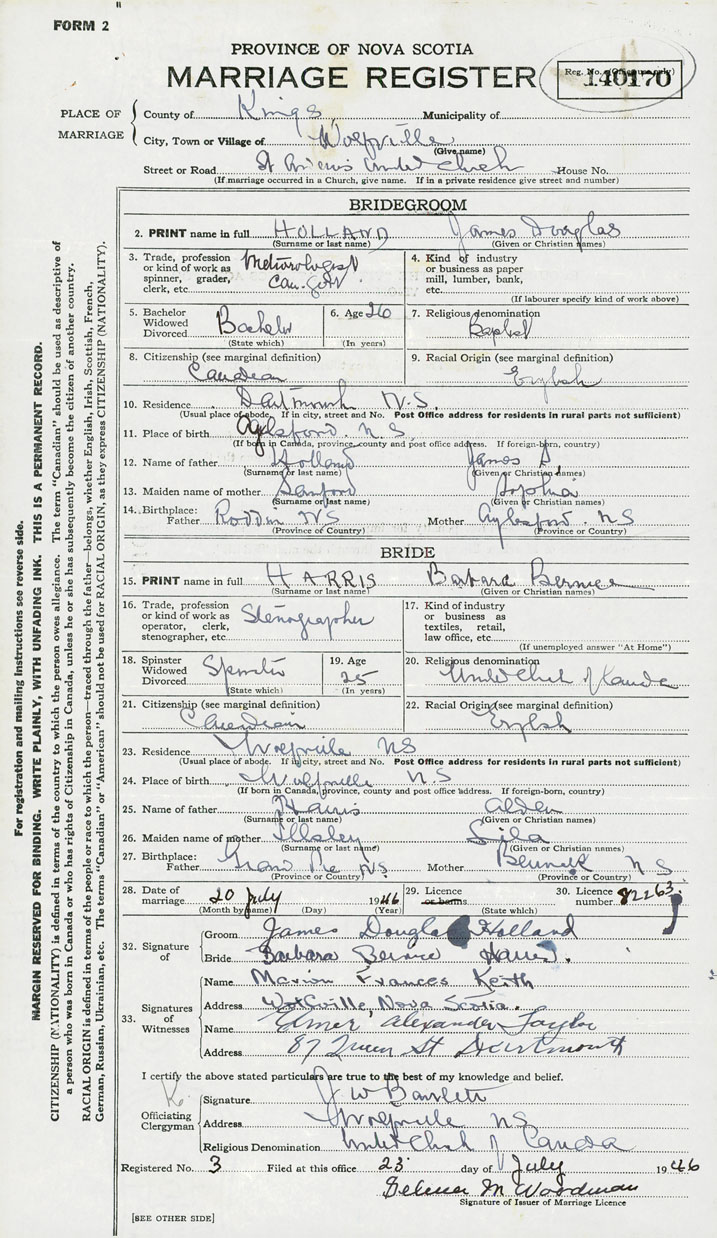 FORM 2
PROVINCE OF NOVA SCOTIA
MARRIAGE REGISTER
Reg. No. (Office use only)
140170
PLACE OF MARRIAGE
County of Kings Municipality of
City, Town or Village of Wolfville
(Give name)
Street or Road St Andrews United Church House No.
(If marriage occurred in a Church, give name. If in a private residence give street and number)
BRIDEGROOM
2. PRINT name in full HOLLAND James Douglas
(Surname or last name) (Given or Christian names)
3. Trade, profession or kind of work as spinner, grader, clerk, etc. Meteorologist Can. Govt
4. Kind of industry or business as paper mill, lumber, bank, etc.
(If labourer specify kind of work above)
5. Bachelor Widowed Divorced Bachelor
(State which)
6. Age 26
(In years)
7. Religious denomination
Baptist
8. Citizenship (see marginal definition)
Canadian
9. Racial Origin (see marginal definition)
English
10. Residence Dartmouth N.S.
(Usual place of abode. If in city, street and No. Post Office address for residents in rural parts not sufficient)
11. Place of birth Aylesford. N.S.
(If born in Canada, province, county and post office address. If foreign-born, country)
12. Name of father Holland James
(Surname or last name) (Given or Christian names)
13. Maiden name of mother Sanford Sophia
(Surname or last name) (Given or Christian names)
14. Birthplace:
Father NS Mother Aylesford. NS
(Province or Country) (Province or Country)
BRIDE
15. PRINT name in full HARRIS Barbara Bernice
(Surname or last name) (Given or Christian names)
16. Trade, profession or kind of work as operator, clerk, stenographer, etc. Stenographer
17. Kind of industry or business as textiles, retail, law office, etc.
(If unemployed answer "At Home")
18. Spinster Widowed Divorced Spinster
(State which)
19. Age
25
(In years)
20. Religious denomination
United Church of Canada
21. Citizenship (see marginal definition)
Canadian
22. Racial Origin (see marginal definition)
English
23. Residence Wolfville NS
(Usual place of abode. If in city, street and No. Post Office address for residents in rural parts not sufficient)
24. Place of birth Wolfville N S
(If born in Canada, province, county and post office address. If foreign-born, country)
25. Name of father Harris Alden
(Surname or last name) (Given or Christian names)
26. Maiden name of mother Illsley
(Surname or last name) (Given or Christian names)
27. Birthplace:
Father Grand Pre NS Mother Berwick N S
(Province or Country) (Province or Country)
28. Date of marriage 20 July 1946
(Month by name) (Day) (Year)
29. Licence or banns
(State which)
30. Licence number 82263
32. Signature of
Groom James Douglas Holland
Bride Barbara Bernice Harris.
33. Signatures of Witnesses
Name Marion Frances Keith
Address Wolfville, Nova Scotia.
Name Elmer Alexander Taylor
Address 87 Queen St Dartmouth
I certify the above stated particulars are true to the best of my knowledge and belief.
Officiating Clergyman
Signature J W Bartlett
Address Wolfville NS
Religious Denomination United Church of Canada
Registered No. 3 Filed at this office 23 day of July 1946
M Woodman
Signature of Issuer of Marriage Licence
[SEE OTHER SIDE]
For registration and mailing instructions see reverse side.
MARGIN RESERVED FOR BINDING. WRITE PLAINLY, WITH UNFADING INK. THIS IS A PERMANENT RECORD.
CITIZENSHIP (NATIONALITY) is defined in terms of the country to which the person owes allegiance. The term "Canadian" should be used as descriptive of
a person who was born in Canada or who has rights of Citizenship in Canada, unless he or she has subsequently become the citizen of another country.
RACIAL ORIGIN is defined in terms of the people or race to which the person—traced through the father—belongs, whether English, Irish, Scottish, French,
German, Russian, Ukrainian, etc. The terms "Canadian" or "American" should not be used for RACIAL ORIGIN, as they express CITIZENSHIP (NATIONALITY).